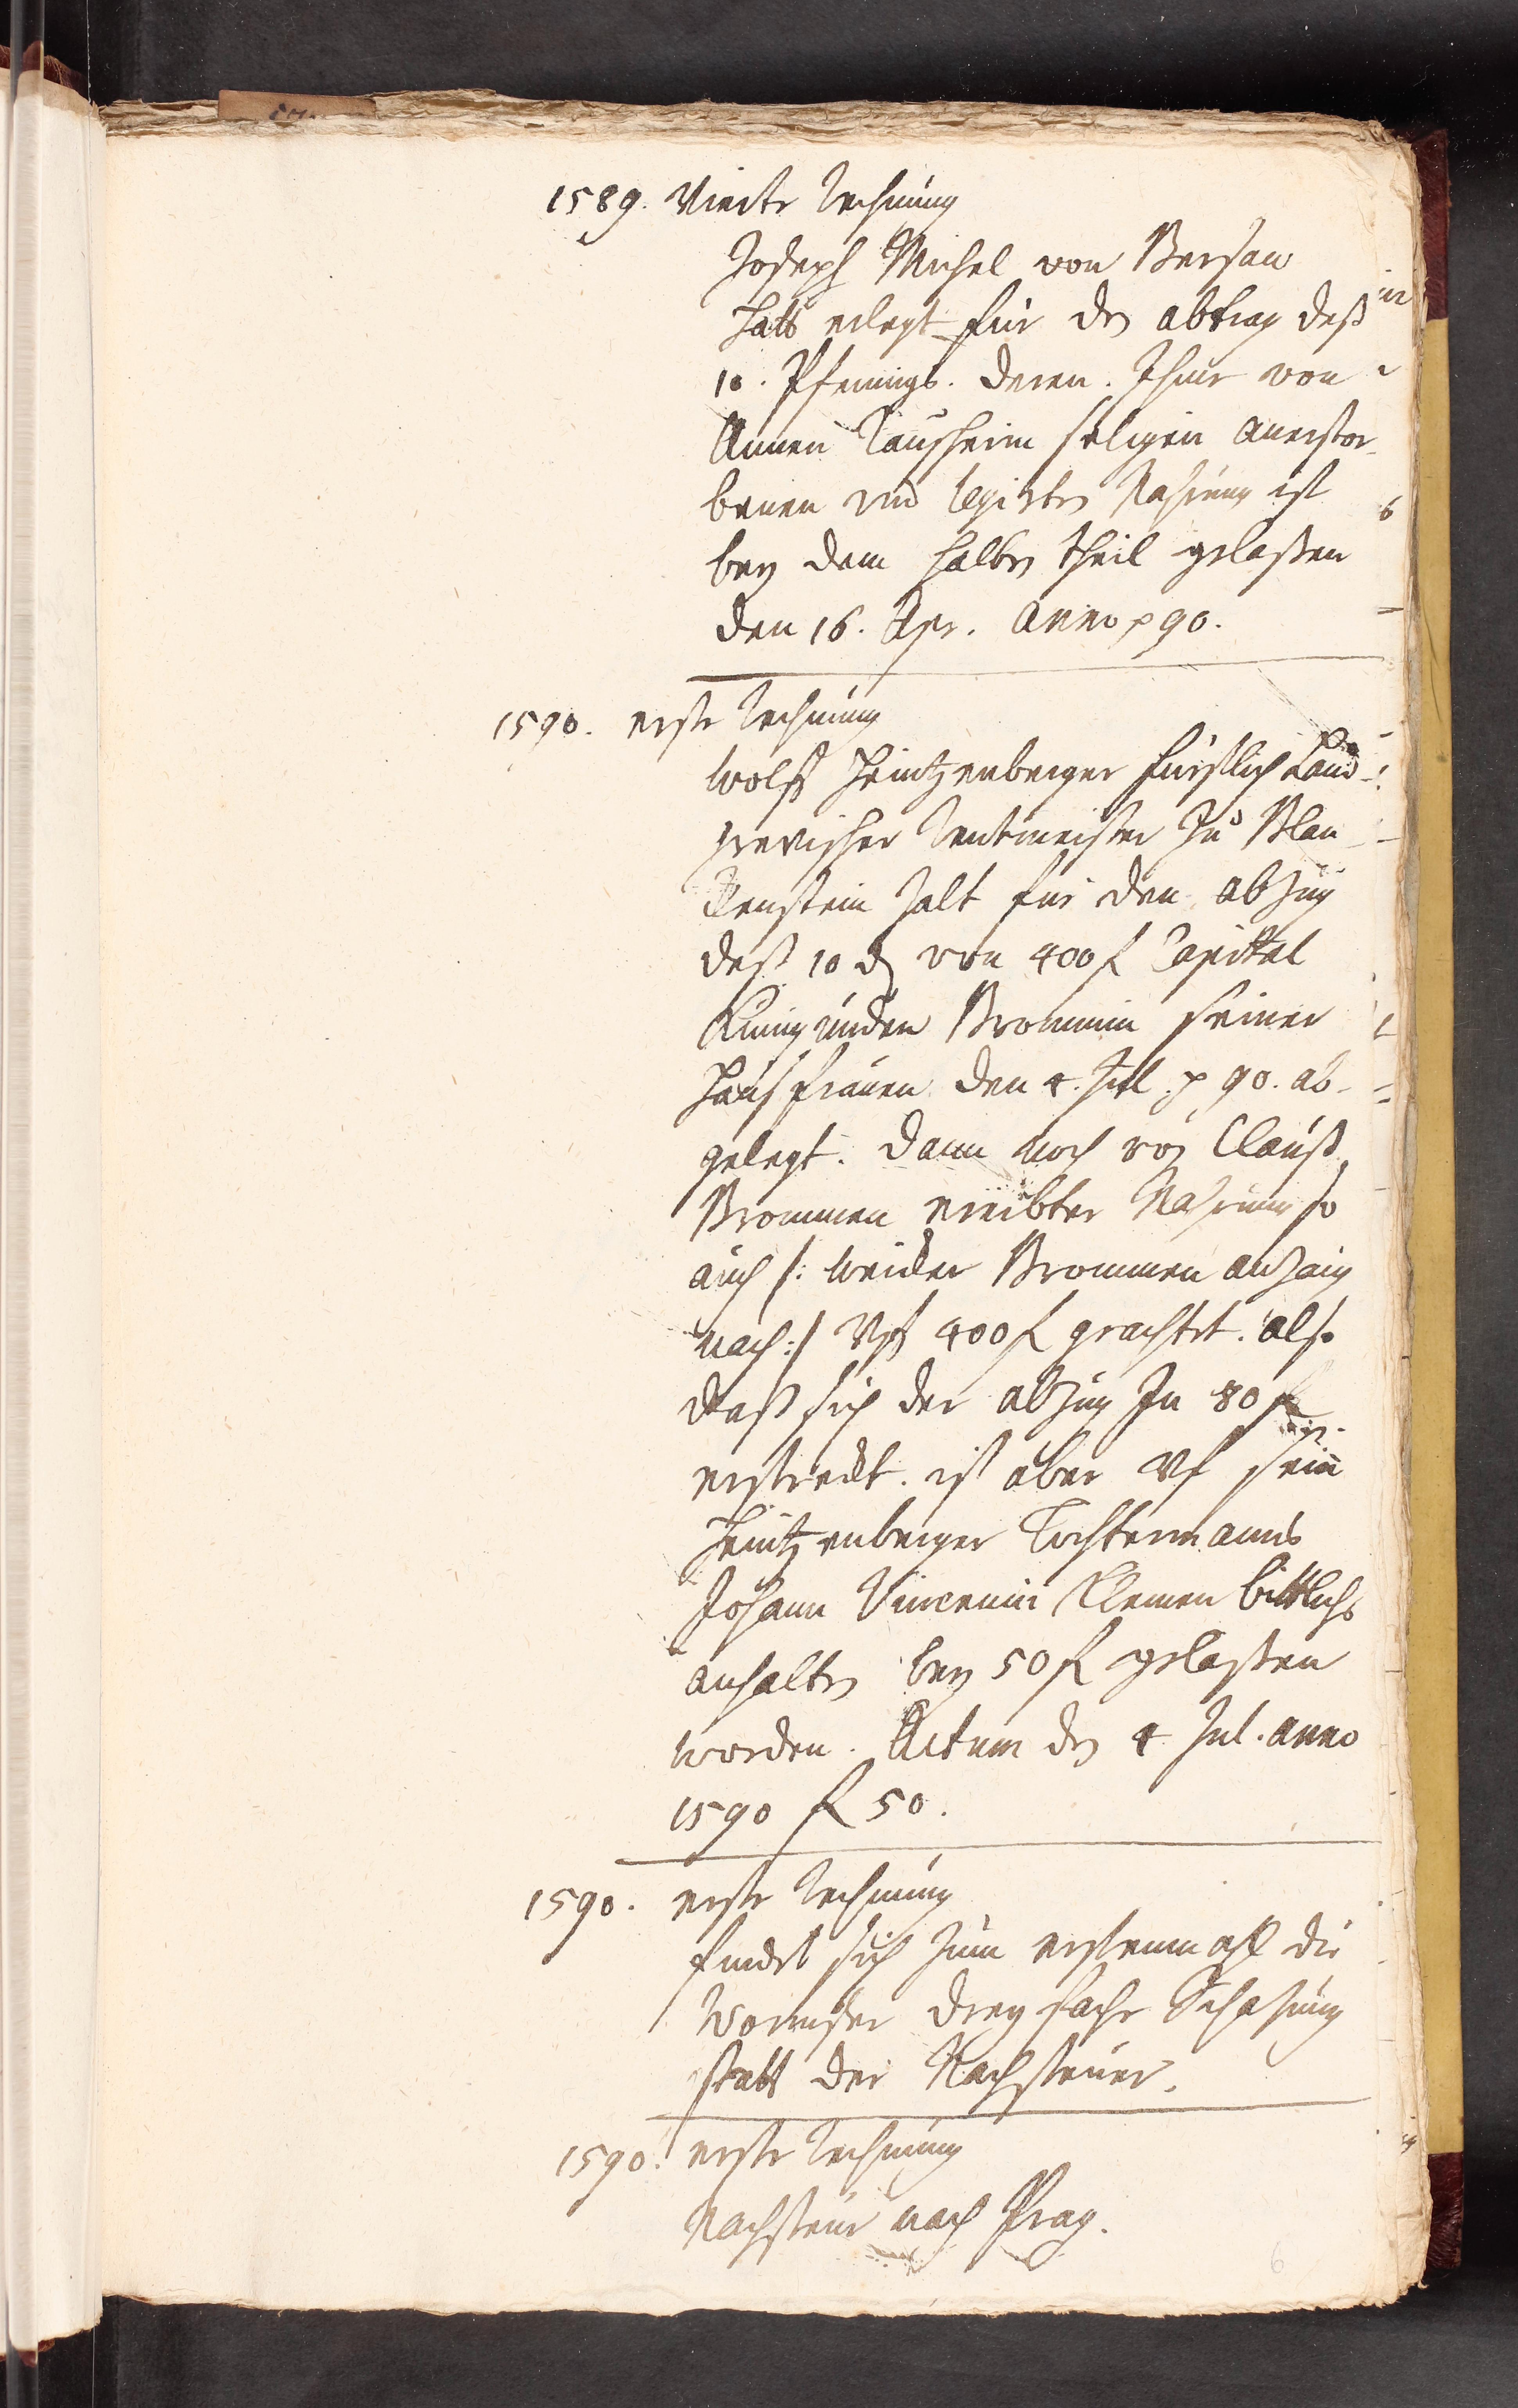 1589. Vierte Rechnung
Joseph Michel von Bersau
hatt erlegt für den abtrag deß
10. Pfennigs. deren. Ihme von
Annen Raußheim seligen anerstor-
benen vnd legirten Nahrung ist
bey dem halben theil gelaßen
den 16. Apr. Anno p 90.
1590. erste Rechnung
Wolff Heintzenberger fürstlich Land-
grevischer Rentmeister Zu Blan-
ckenstein hatt für den abzug
deß 10 d von 400 f Capital
Kunigunden Brommin seiner
Haußfrauen den 4. Jul. p 90. ab-
gelegt. dann noch von Clauß
Brommen ererbter Nahrung so
auch /: weider Brommen anzaig
nach :/ Vff 400 f geachtet. also
daß sich der abzug In 80 f
erstreckt. ist aber Vf sein
Heintzenberger Tochtermanns
Johann Vincentii Clemen bittlichs
anhalten bey 50 f gelaßen
worden. Actum den 4 Jul. anno
1590 f 50.
1590. erste Rechnung
findet sich zum erstenmahl die
Wormser dreyfache Schatzung
statt der Nachsteuer.
1590. erste Rechnung
Nachsteuer nach Prag.
6